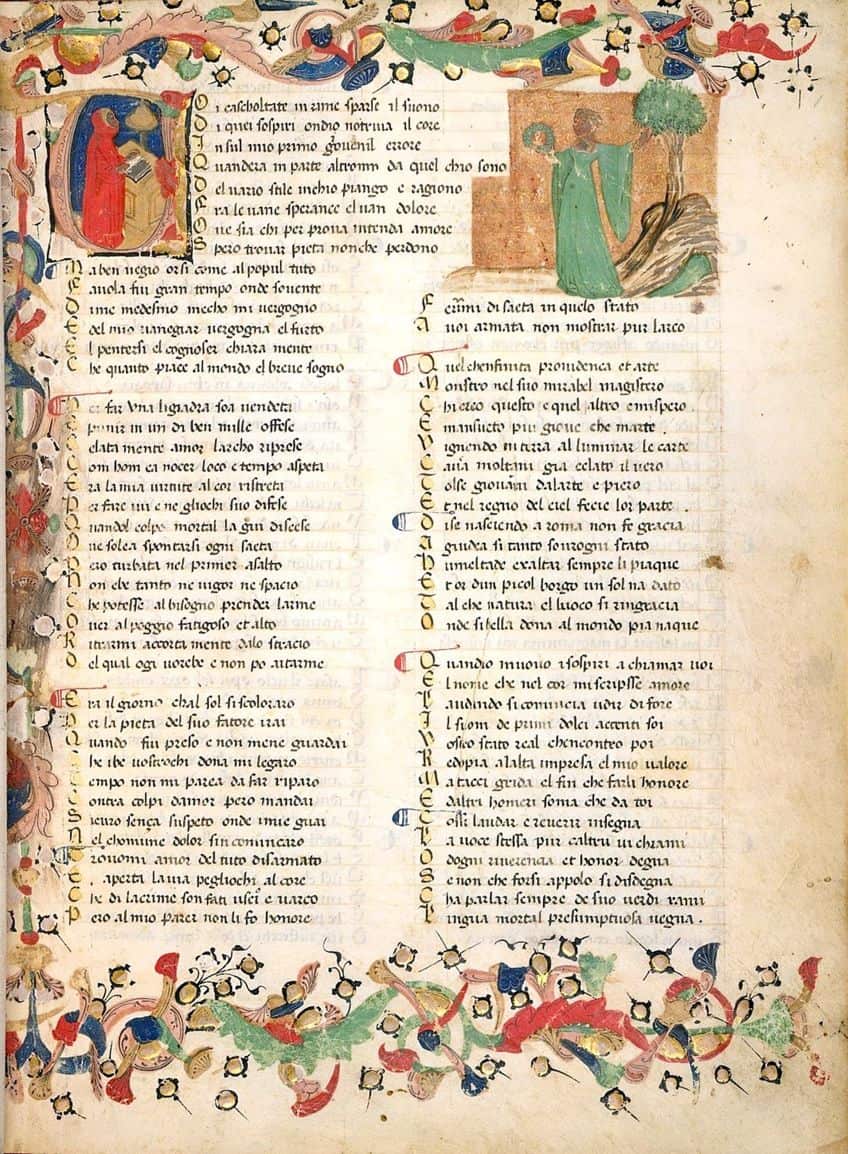 Oi cascholtate in rime sparse il suono
Di quei sospiri ondio notriua il core
In sul mio primo giouenil errore
Quandera in parte altromo da quel chio sono
Del uario stile inchio piango e ragiono
Fra le uane sperance el uan dolore
Oue sia chi per proua intenda amore
Spero trouar pieta nonche perdono
Ma ben uegio orsi come al popul tuto
Fauola fui gran tempo onde souente
Di me medesmo mecho mi uergogno
E del mio uanegiar uergogna el fruto
El pentersi el cognoser chiara mente
Che quanto piace al mondo el breue sogno
Per far una ligiadra soa vendeta
E punir in un di ben mille offese
Celata mente amor larcho riprese
Como hom ca nocer loco e tempo aspeta
Era la mia uirtute al cor ristreta
Per fare iui e ne gliochi suo difese
Quandol colpo mortal la gui discese
Oue solea spontarsi ogni saeta
Pero turbata nel primer asalto
Non ebe tanto ne uigor ne spacio
Che potesse al bisogno prender larme
Ouer al poggio fatigoso et alto
Ritrarmi accorta mente dalo stracio
Do el qual ogi uorebe e non po aitarme
Era il giorno chal sol si scoloraro
Per la pieta del suo fatore i rai
Quando fiu preso e non mene guardai
Che ibe uostrochi dona mi legaro
Tempo non mi parea da far riparo
Contra colpi damor pero mandai
Sicuro sença suspeto onde imie guai
Nel chomune dolor sin comincaro
Trouomi amor del tuto disarmato
E. aperta la uia pegliochi al core
Che di lacrime son fati usci e uarco
Pero al mio parer non li fo honore
Ferirmi di saeta in quelo stato
A uoi armata non mostrar pur larco
Quel chenfinita prouidenca et arte
Monstro nel suo mirabel magistero
Chi creo questo e quel altro emispero.
E mansueto piu gioue che marte.
Vignendo in terra al luminar le carte
Caua moltani gia celato il uero
Tolse giouani dalarte e piero
Et nel regno del ciel fecie lor parte.
Di se nasciendo a roma non fe gracia
A giudea si tanto souro gni stato
Humeltade exaltar sempre li piaque
Et or dun picol borgo un sol na dato
Tal che natura el luoco si ringracia
Onde si bella dona al mondo pia naque
Quandio muouo i sospiri a chiamar uoi
El nome che nel cor mi scripsse amore
Laudando si comincia udir di fore
Il suom de primi dolci accenti soi
Vostro stato real chencontro poi
Redopia alalta impresa el mio ualore
Ma taci grida el fin che farli honore
E daltri homeri soma che da toi
Cossi laudar e reuerir insegna
La uoce stessa pur caltrui ui chiami
O dogni riuerencia et honor degna
Se non che forsi appolo si disdegna
Cha parlar sempre de suo uerdi rami
Lingua mortal presumptuosa uegna.